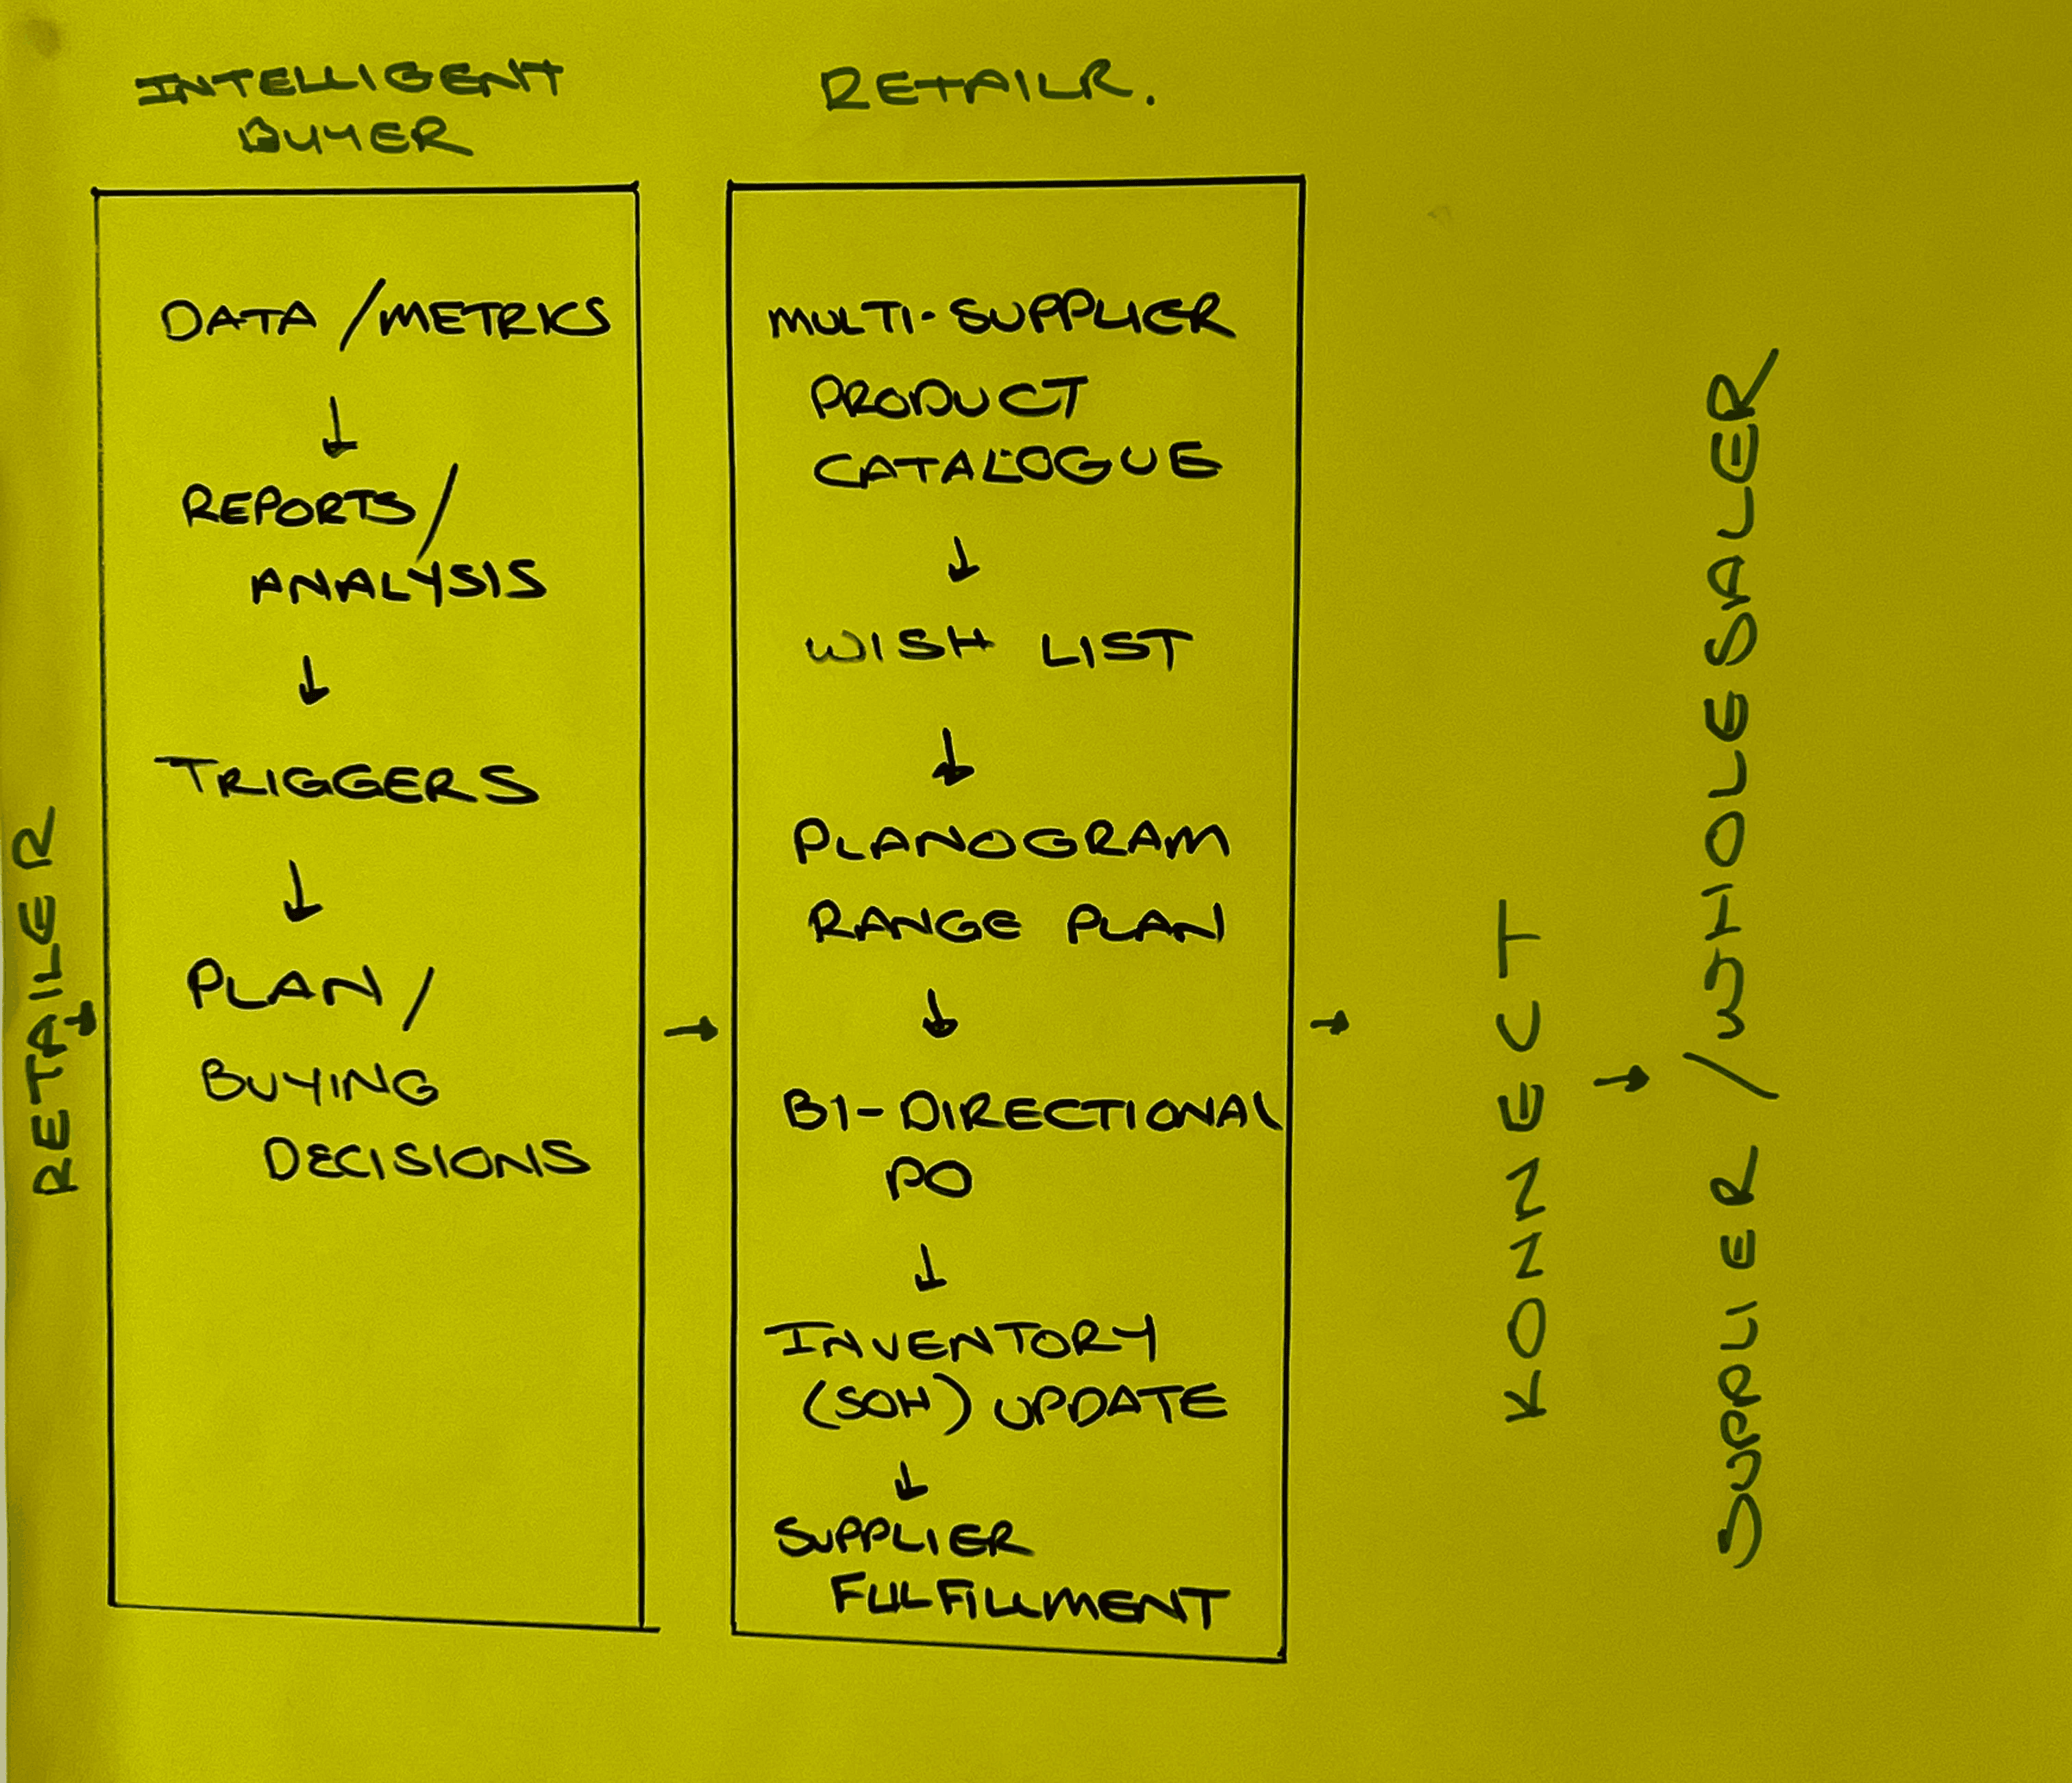 INTELLIGENT
BUYER
RETAILR.
RETAILER
DATA/METRICS
REPORTS/
ANALYSIS
TRIGGERS
PLAN/
BUYING
DECISIONS
MULTI-SUPPLIER
PRODUCT
CATALOGUE
WISH LIST
PLANOGRAM
RANGE PLAN
BI-DIRECTIONAL
PO
INVENTORY
(SOH) UPDATE
SUPPLIER
FULFILLMENT
KONNECT
SUPPLIER/WHOLESALER